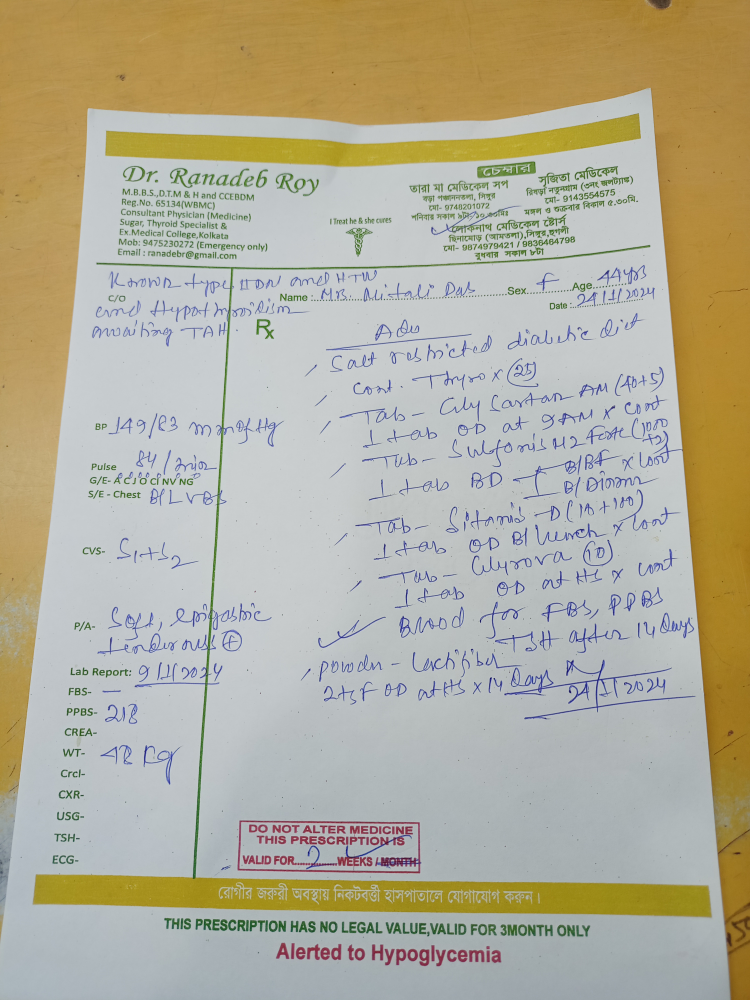 Dr. Ranadeb Roy
M.B.B.S.,D.T.M & H and CCEBDM
Reg.No. 65134(WBMC)
Consultant Physician (Medicine)
Sugar, Thyroid Specialist &
Ex.Medical College,Kolkata
Mob: 9475230272 (Emergency only)
Email : ranadebr@gmail.com
I Treat he & she cures
চেম্বার
তারা মা মেডিকেল সপ
বড়া পঞ্চাননতলা, সিঙ্গুর
মো- 9748201072
শনিবার সকাল ৯টা/১০.৩০মিঃ
সুজিতা মেডিকেল
রিষড়া নতুনগ্রাম (৩নং জলট্যাঙ্ক)
মো- 9143554575
মঙ্গল ও শুক্রবার বিকাল ৫.৩০মি.
লোকনাথ মেডিকেল ষ্টোর্স
ছিনামোড় (আমতলা),সিঙ্গুর,হুগলী
মো- 9874979421 / 9836484798
বুধবার সকাল ৮টা
Known type II DM and HTN
C/O and Hypothyroidism
awaiting TAH
Name : Mrs. Mitali Das Sex F Age 44 yrs
Date : 24/1/2024
Rx
Adv
Salt restricted diabetic diet
Cont. Thyrox (25)
Tab - Glysartan AM (40+5)
1 tab OD at 9AM x cont
Tab - Sulfonis M2 Forte (1000+2)
1 tab BD B/BF B/Dinner x cont
Tab - Sitanis - D (10+100)
1 tab OD B/Lunch x cont
Tab - Glyrova (10)
1 tab OD at HS x cont
Blood for FBS, PPBS
TSH after 14 Days
powder - Lactifiber
2 tsf OD at HS x 14 Days
24/1/2024
BP 149/83 mm of Hg
Pulse 84/min
G/E- A C J O CI NV NG
S/E - Chest B/L VBS
CVS- S1+S2
P/A- Soft, epigastric
tenderness (+)
Lab Report: 9/1/2024
FBS- —
PPBS- 218
CREA-
WT- 48 kg
Crcl-
CXR-
USG-
TSH-
ECG-
DO NOT ALTER MEDICINE
THIS PRESCRIPTION IS
VALID FOR....2....WEEKS / MONTH
রোগীর জরুরী অবস্থায় নিকটবর্ত্তী হাসপাতালে যোগাযোগ করুন।
THIS PRESCRIPTION HAS NO LEGAL VALUE,VALID FOR 3MONTH ONLY
Alerted to Hypoglycemia